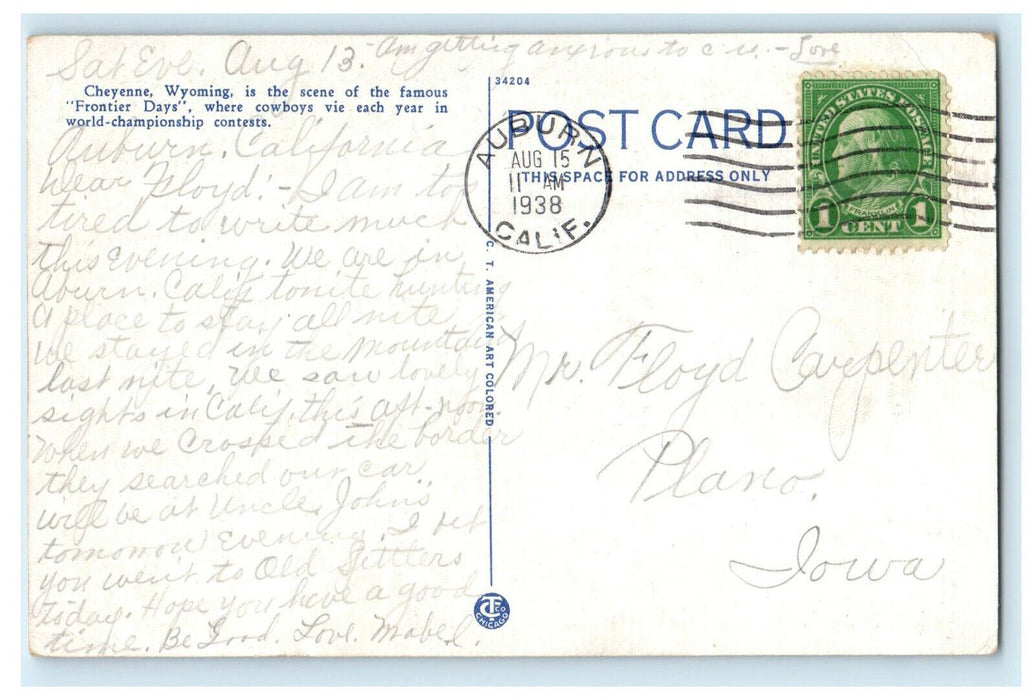 Sat Eve. Aug 13. - Am getting anxious to c u. - Love
Cheyenne, Wyoming, is the scene of the famous
"Frontier Days", where cowboys vie each year in
world-championship contests.
Auburn, California
Dear Floyd! - I am to
tired to write much
this evening. We are in
Aburn, Calif tonite hunting
a place to stay all nite
We stayed in the mountains
last nite. We saw lovely
sights in Calif. this aft-noon
When we crossed the border
they searched our car.
will be at Uncle John's
tomorrow evening. I bet
you went to Old Settlers
today. Hope you have a good
time. Be Good. Love. Mabel.
34204
POST CARD
THIS SPACE FOR ADDRESS ONLY
AUBURN
AUG 15
11 AM
1938
CALIF.
UNITED STATES POSTAGE
FRANKLIN
1 CENT 1
C. T. AMERICAN ART COLORED
Mr. Floyd Carpenter
Plano,
Iowa
CT CO
CHICAGO